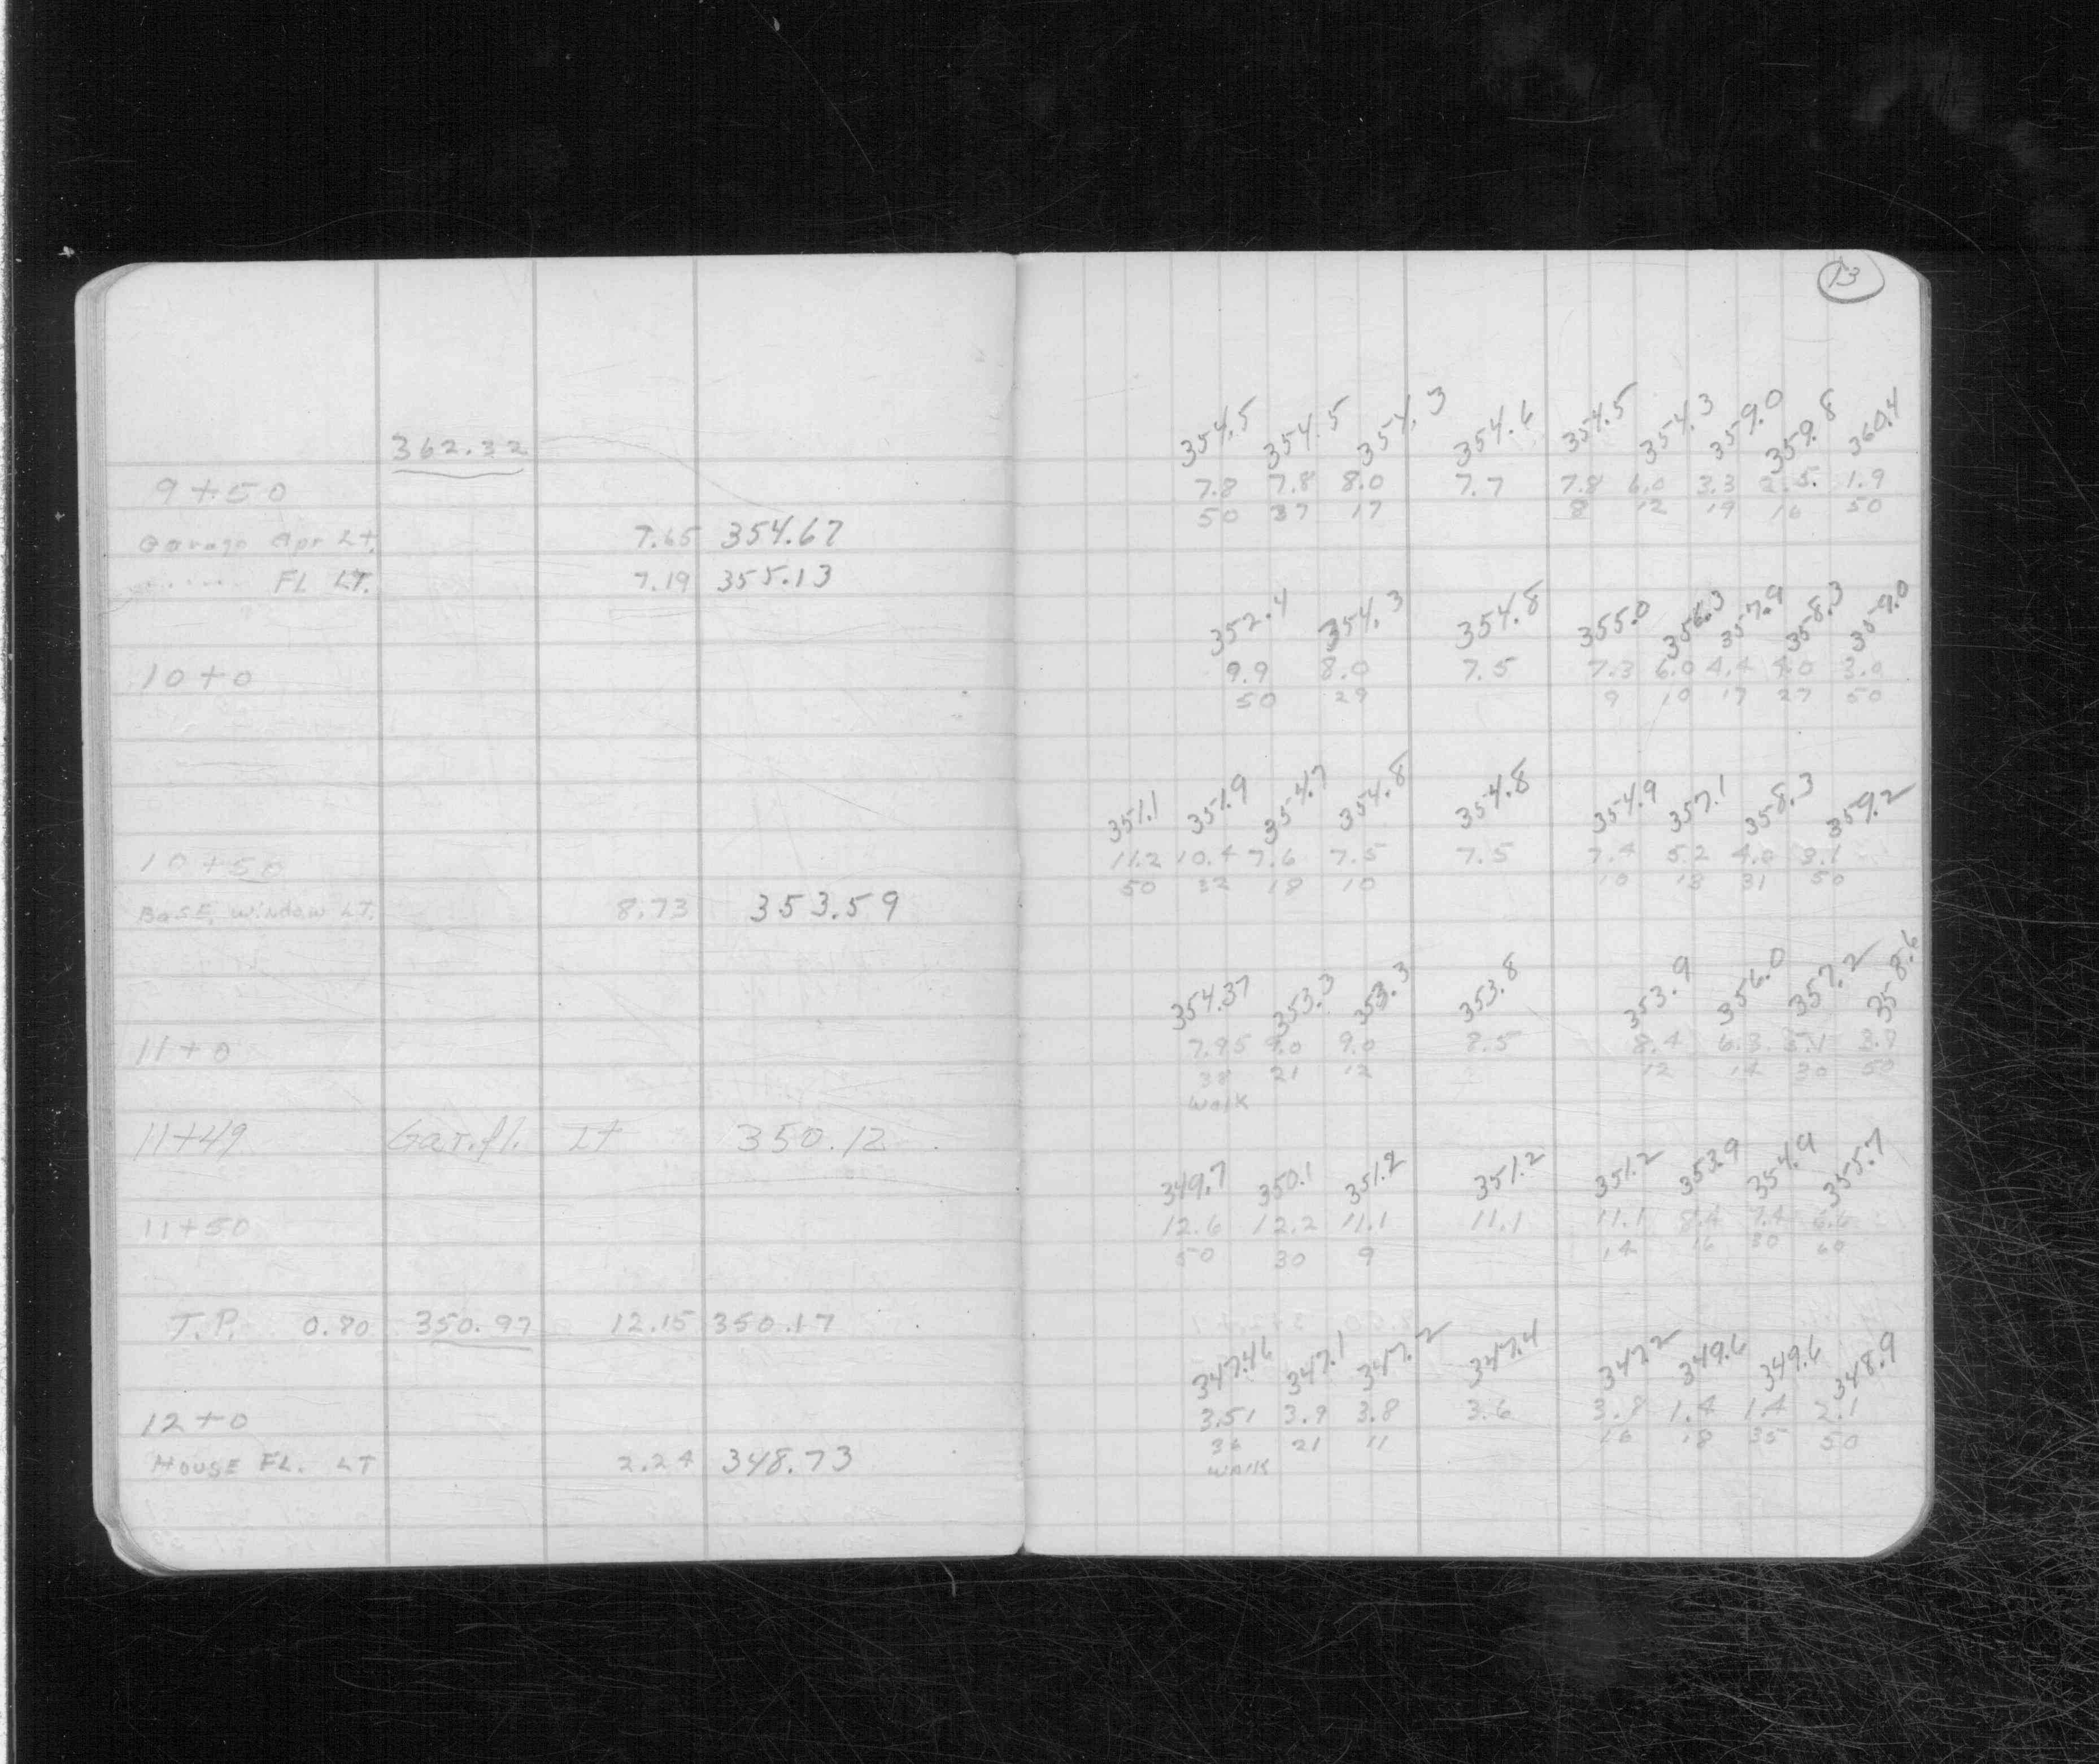 13
362.32
354.5 354.5 354.3 354.6 354.5 354.3 359.0 359.8 360.4
9+50
7.8 7.8 8.0 7.7 7.8 6.0 3.3 2.5 1.9
50 37 17 8 12 19 16 50
Garage Apr Lt. 7.65 354.67
FL LT. 7.19 355.13
352.4 354.3 354.8 355.0 356.3 357.9 358.3 359.0
10+0
9.9 8.0 7.5 7.3 6.0 4.4 4.0 3.0
50 29 9 10 17 27 50
351.1 351.9 354.7 354.8 354.8 354.9 357.1 358.3 359.2
10+50
11.2 10.4 7.6 7.5 7.5 7.4 5.2 4.0 3.1
50 32 18 10 10 13 31 50
BasE. window LT. 8.73 353.59
354.37 353.3 353.3 353.8 353.9 356.0 357.2 358.6
11+0
7.95 9.0 9.0 8.5 8.4 6.3 5.1 3.7
38 21 12 12 14 30 50
walk
11+49 Gar.fl. Lt 350.12
349.7 350.1 351.2 351.2 351.2 353.9 354.9 355.7
11+50
12.6 12.2 11.1 11.1 11.1 8.4 7.4 6.6
50 30 9 14 16 30 60
T.P. 0.80 350.97 12.15 350.17
347.46 347.1 347.2 347.4 347.2 349.6 349.6 348.9
12+0
3.51 3.9 3.8 3.6 3.8 1.4 1.4 2.1
36 21 11 16 18 35 50
walk
HOUSE FL. LT 2.24 348.73